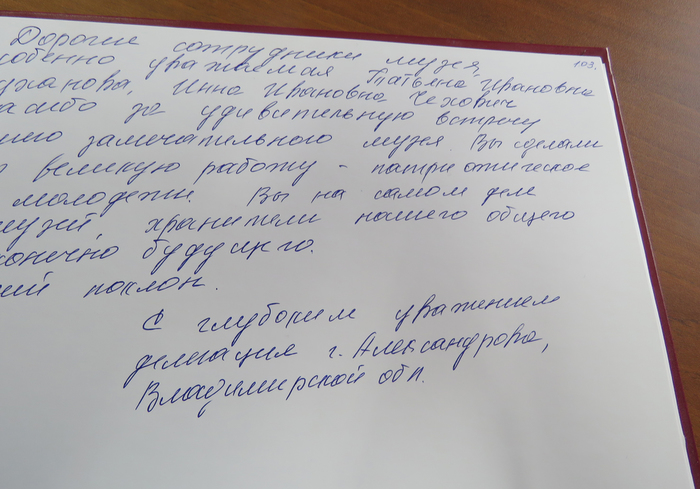 103.
Дорогие сотрудники музея,
собенно уважаемая Татьяна Ивановна
Инна Ивановна Чехович
асибо за удивительную встречу
замечательного музея. Вы сделали
великую работу - патриотическое
молодежи. Вы на самом дел
музей, хранители нашего общего
конечно будущего.
ий поклон.
С глубоким уважением
делегация г. Александрова,
Владимирской обл.